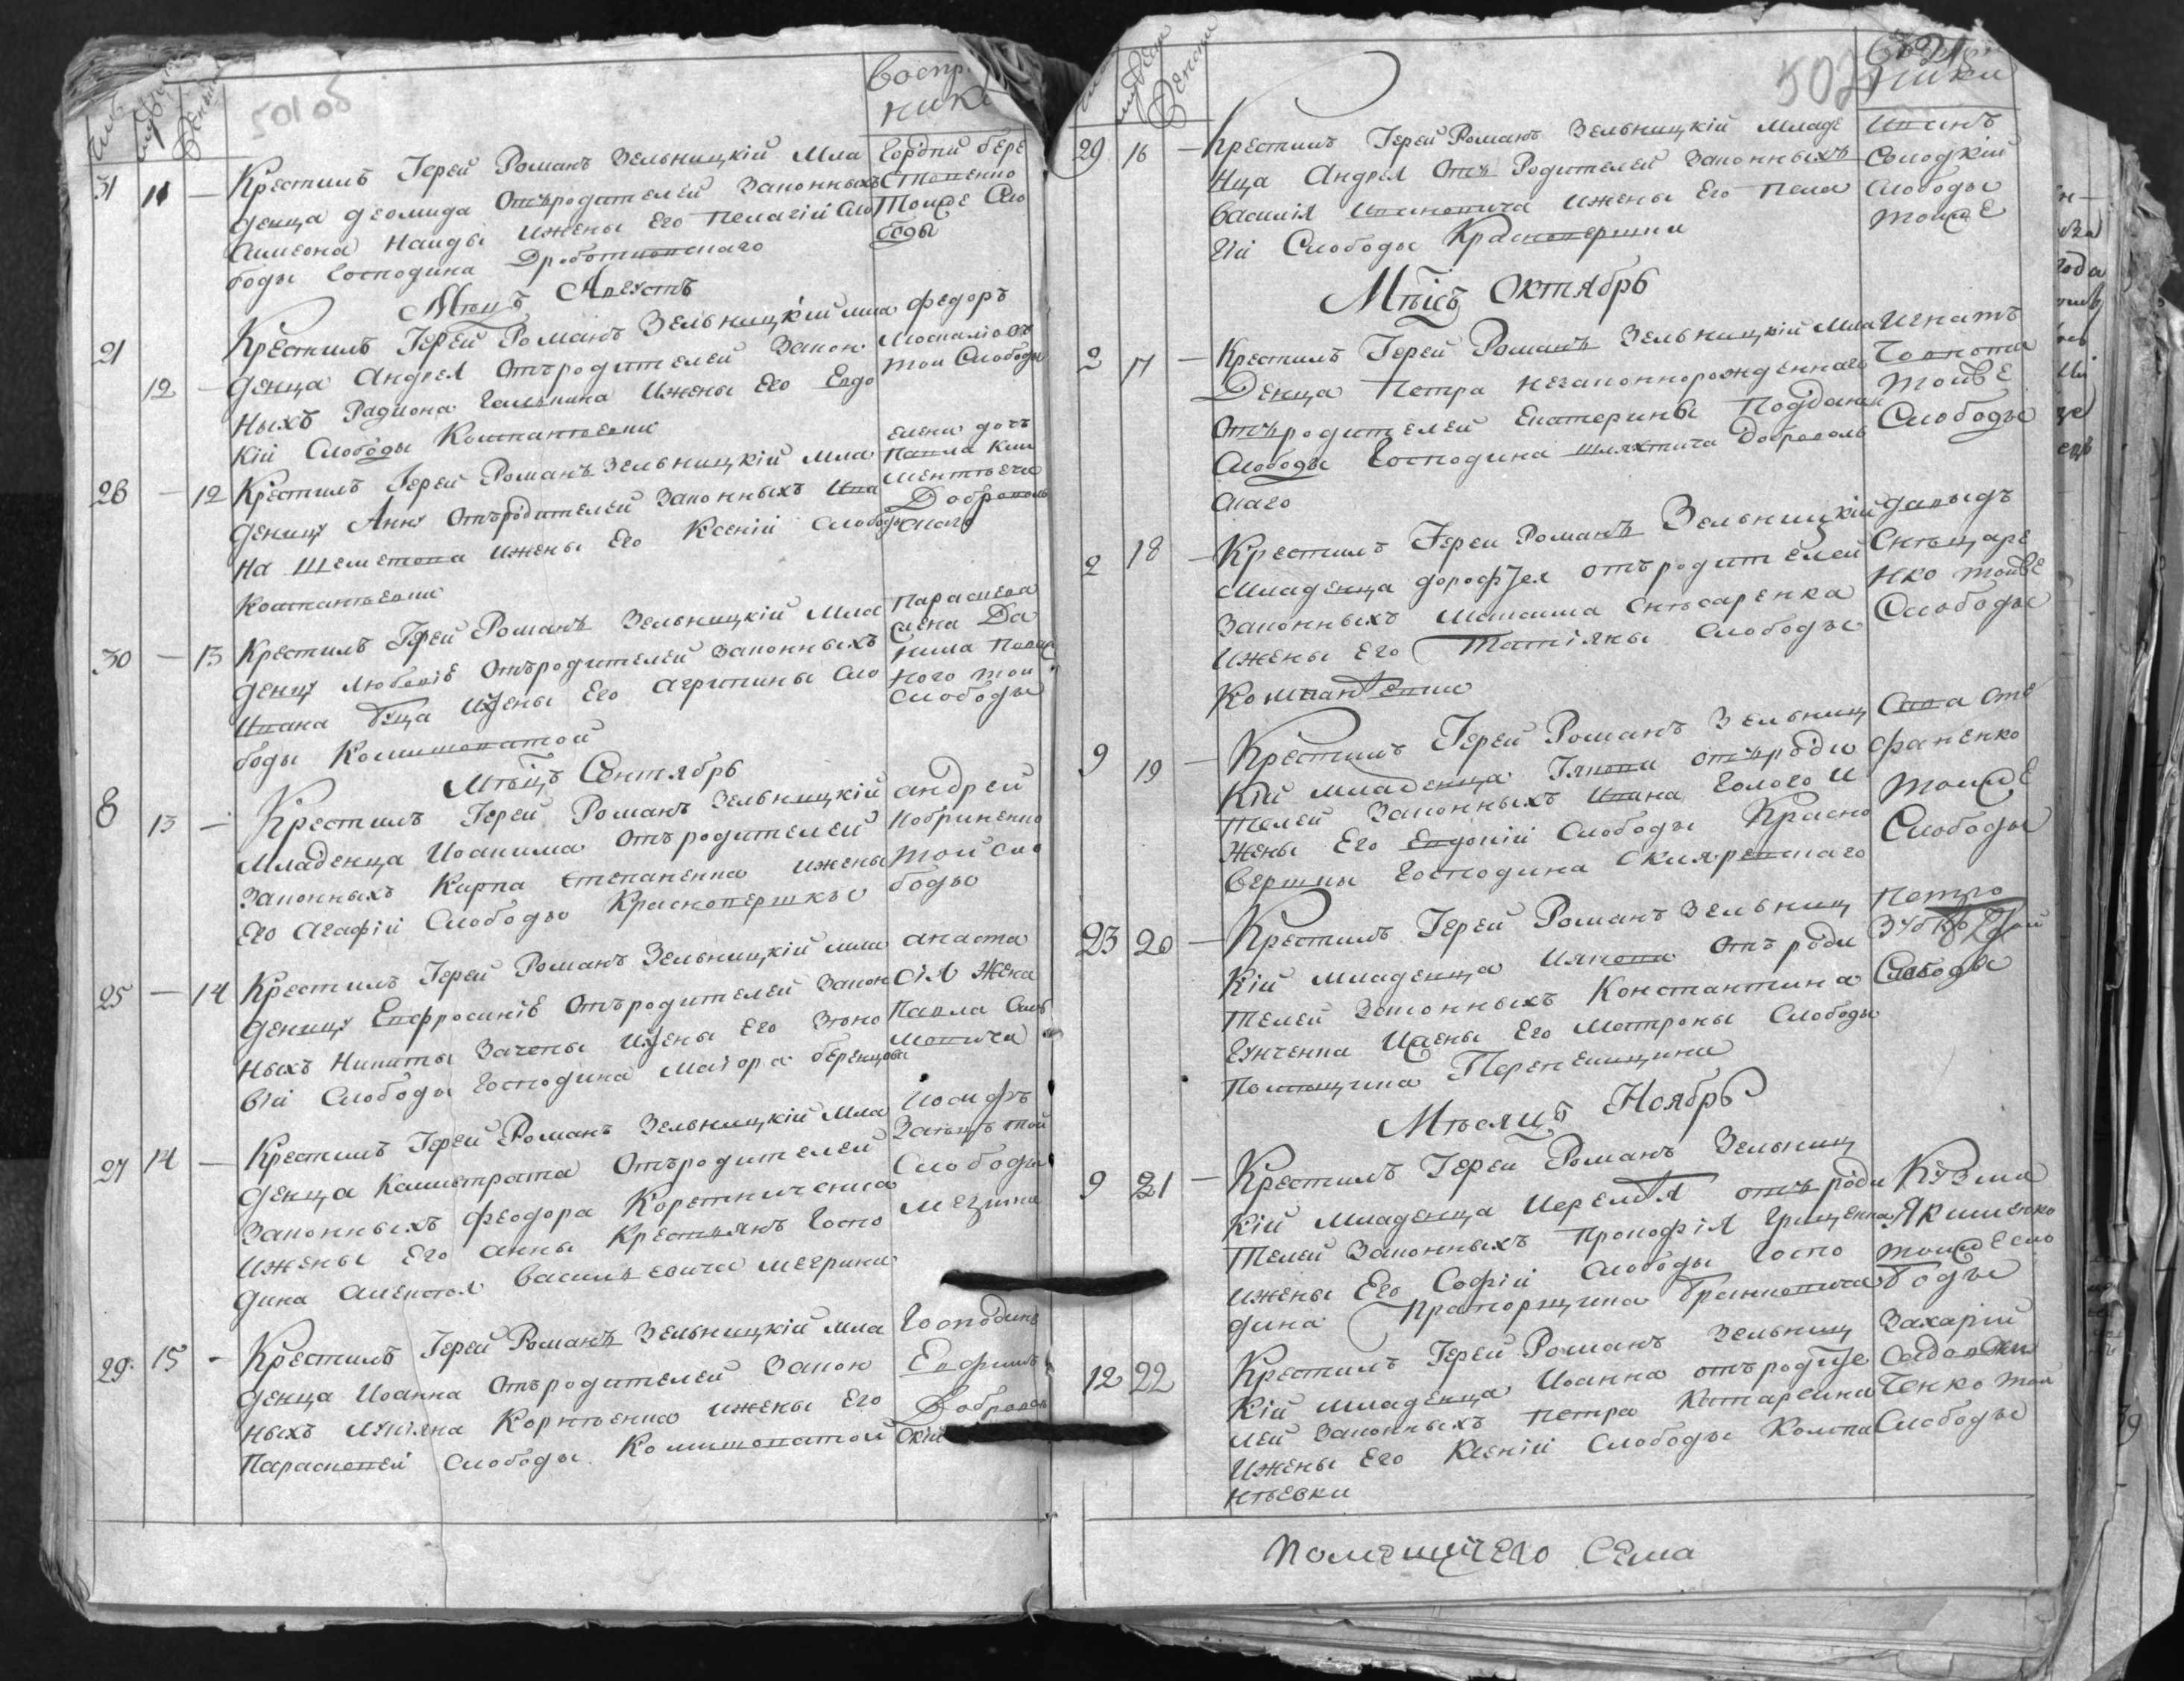 501 об
Числ
Мужеск
Женск
Воспр.
ники
31 11 — Крестилъ Іерей Романъ Зельницкій Мла
денца Деомида Отъродителей Законныхъ
Симеона Наиды Ижены Его Пелагіи Сло
боды Господина Дроботковскаго
Гордѣй бере
Стовенко
Тоиже Сло
боды
Мѣцъ Августъ
21 12 — Крестилъ Іерей Романъ Зельницкій мла
денца Андрея Отъродителей Закон
ныхъ Радиона Галькина Ижены Его Евдо
кіи Слободы Компантѣевки
Федоръ
Москалiовъ
тои Слободы
28 — 12 Крестилъ Іерей Романъ Зельницкій Мла
деницу Анну Отъродителей Законныхъ Ива
на Шеметова Ижены Его Ксеніи Слободы
Компантѣевки
елена дочъ
Павла Кли
ментѣеча
Доброволь
скаго
30 — 13 Крестилъ Іерей Романъ Зельницкій Мла
деницу Любовіѣ Отъродителей Законныхъ
Ивана Буца Ижены Его Агрипины Сло
боды Комишоватой
Параскева
жена Да
нила
ного тои
слободы
Мѣцъ Сентябрь
8 13 — Крестилъ Іерей Романъ Зельницкій
Младенца Иоакима Отъродителей
Законныхъ Карпа Степаненка Ижены
Его Агафіи Слободы Красновершкы
андрей
Кобриненко
той сло
боды
25 — 14 Крестилъ Іерей Романъ Зельницкій мла
деницу Евфросиніѣ Отъродителей Закон
ныхъ Никиты Зачепы Ижены Его Зѣно
віи Слободы Господина Маіора беренцовы
анаста
сія Жена
Павла
27 14 — Крестилъ Іерей Романъ Зельницкій Мла
денца Калистрата Отъродителей
Законныхъ Феодора Коретниченка
Ижены Его анны Крестьянъ Госпо
дина Алексѣя Васильевича Мезрина
Иосифъ
Заѣцъ той
Слободы
Мезрина
29 15 — Крестилъ Іерей Романъ Зельницкій мла
денца Иоанна Отъродителей Закон
ныхъ Лукіяна Корнѣенка Ижены Его
Параскевеи Слободы Комишоватой
Господинъ
Евфимъ
Доброволь
скій
502
Мужеск
Женск
ники
29 16 — Крестилъ Іерей Романъ Зельницкій Младе
нца Андрея Отъ Родителей Законныхъ
Василія Ивановича Ижены Его Пела
гіи Слободы Красновершки
Иванъ
Слободы
тоиже
Мѣсцъ Октябрь
2 17 — Крестилъ Іерей Романъ Зельницкій Мла
Денца Петра незаконнорожденнаго
Отъродителей Екатерины Подданой
Слободы Господина шляхтича Доброволь
скаго
Игнатъ
Човнота
тоиже
Слободы
2 18 — Крестилъ Іерей Романъ Зельницкій
младенца дорофѣея отъродителей
Законныхъ Максима Снѣсаренка
Ижены Его Татіяны Слободы
Компантѣевки
давыдъ
Снѣцаре
нко тоиже
Слободы
9 19 — Крестилъ Іерей Романъ Зельниц
Кій младенца Іякова отъроди
телей Законныхъ Ивана Голого И
жены Его Евдокіи Слободы Красно
вершки Господина Скляревскаго
Сава Сте
фаненко
тоиже
Слободы
23 20 — Крестилъ Іерей Романъ Зельниц
Кій младенца Иякова Отъ роди
телей Законныхъ Константина
Гунченка Ижены Его Матроны Слободы
Помѣщика Перепелицина
Петро
Слободы
Мѣсяцъ Ноябрь
9 21 — Крестилъ Іерей Романъ Зельниц
Кій младенца Иеремѣя отъ роди
телей Законныхъ Прокофія Грищенка
Ижены Его Софіи Слободы Госпо
дина Прапорщика Бранковича
Кузма
Якименко
тоиже сло
боды
12 22 Крестилъ Іерей Романъ Зельниц
Кій младенца Иоанна отъродіте
лей Законныхъ Петра Катаржина
Ижены Его Ксеніи Слободы Компа
нѣевки
Захарій
ченко той
Слободы
Помѣщичего Села